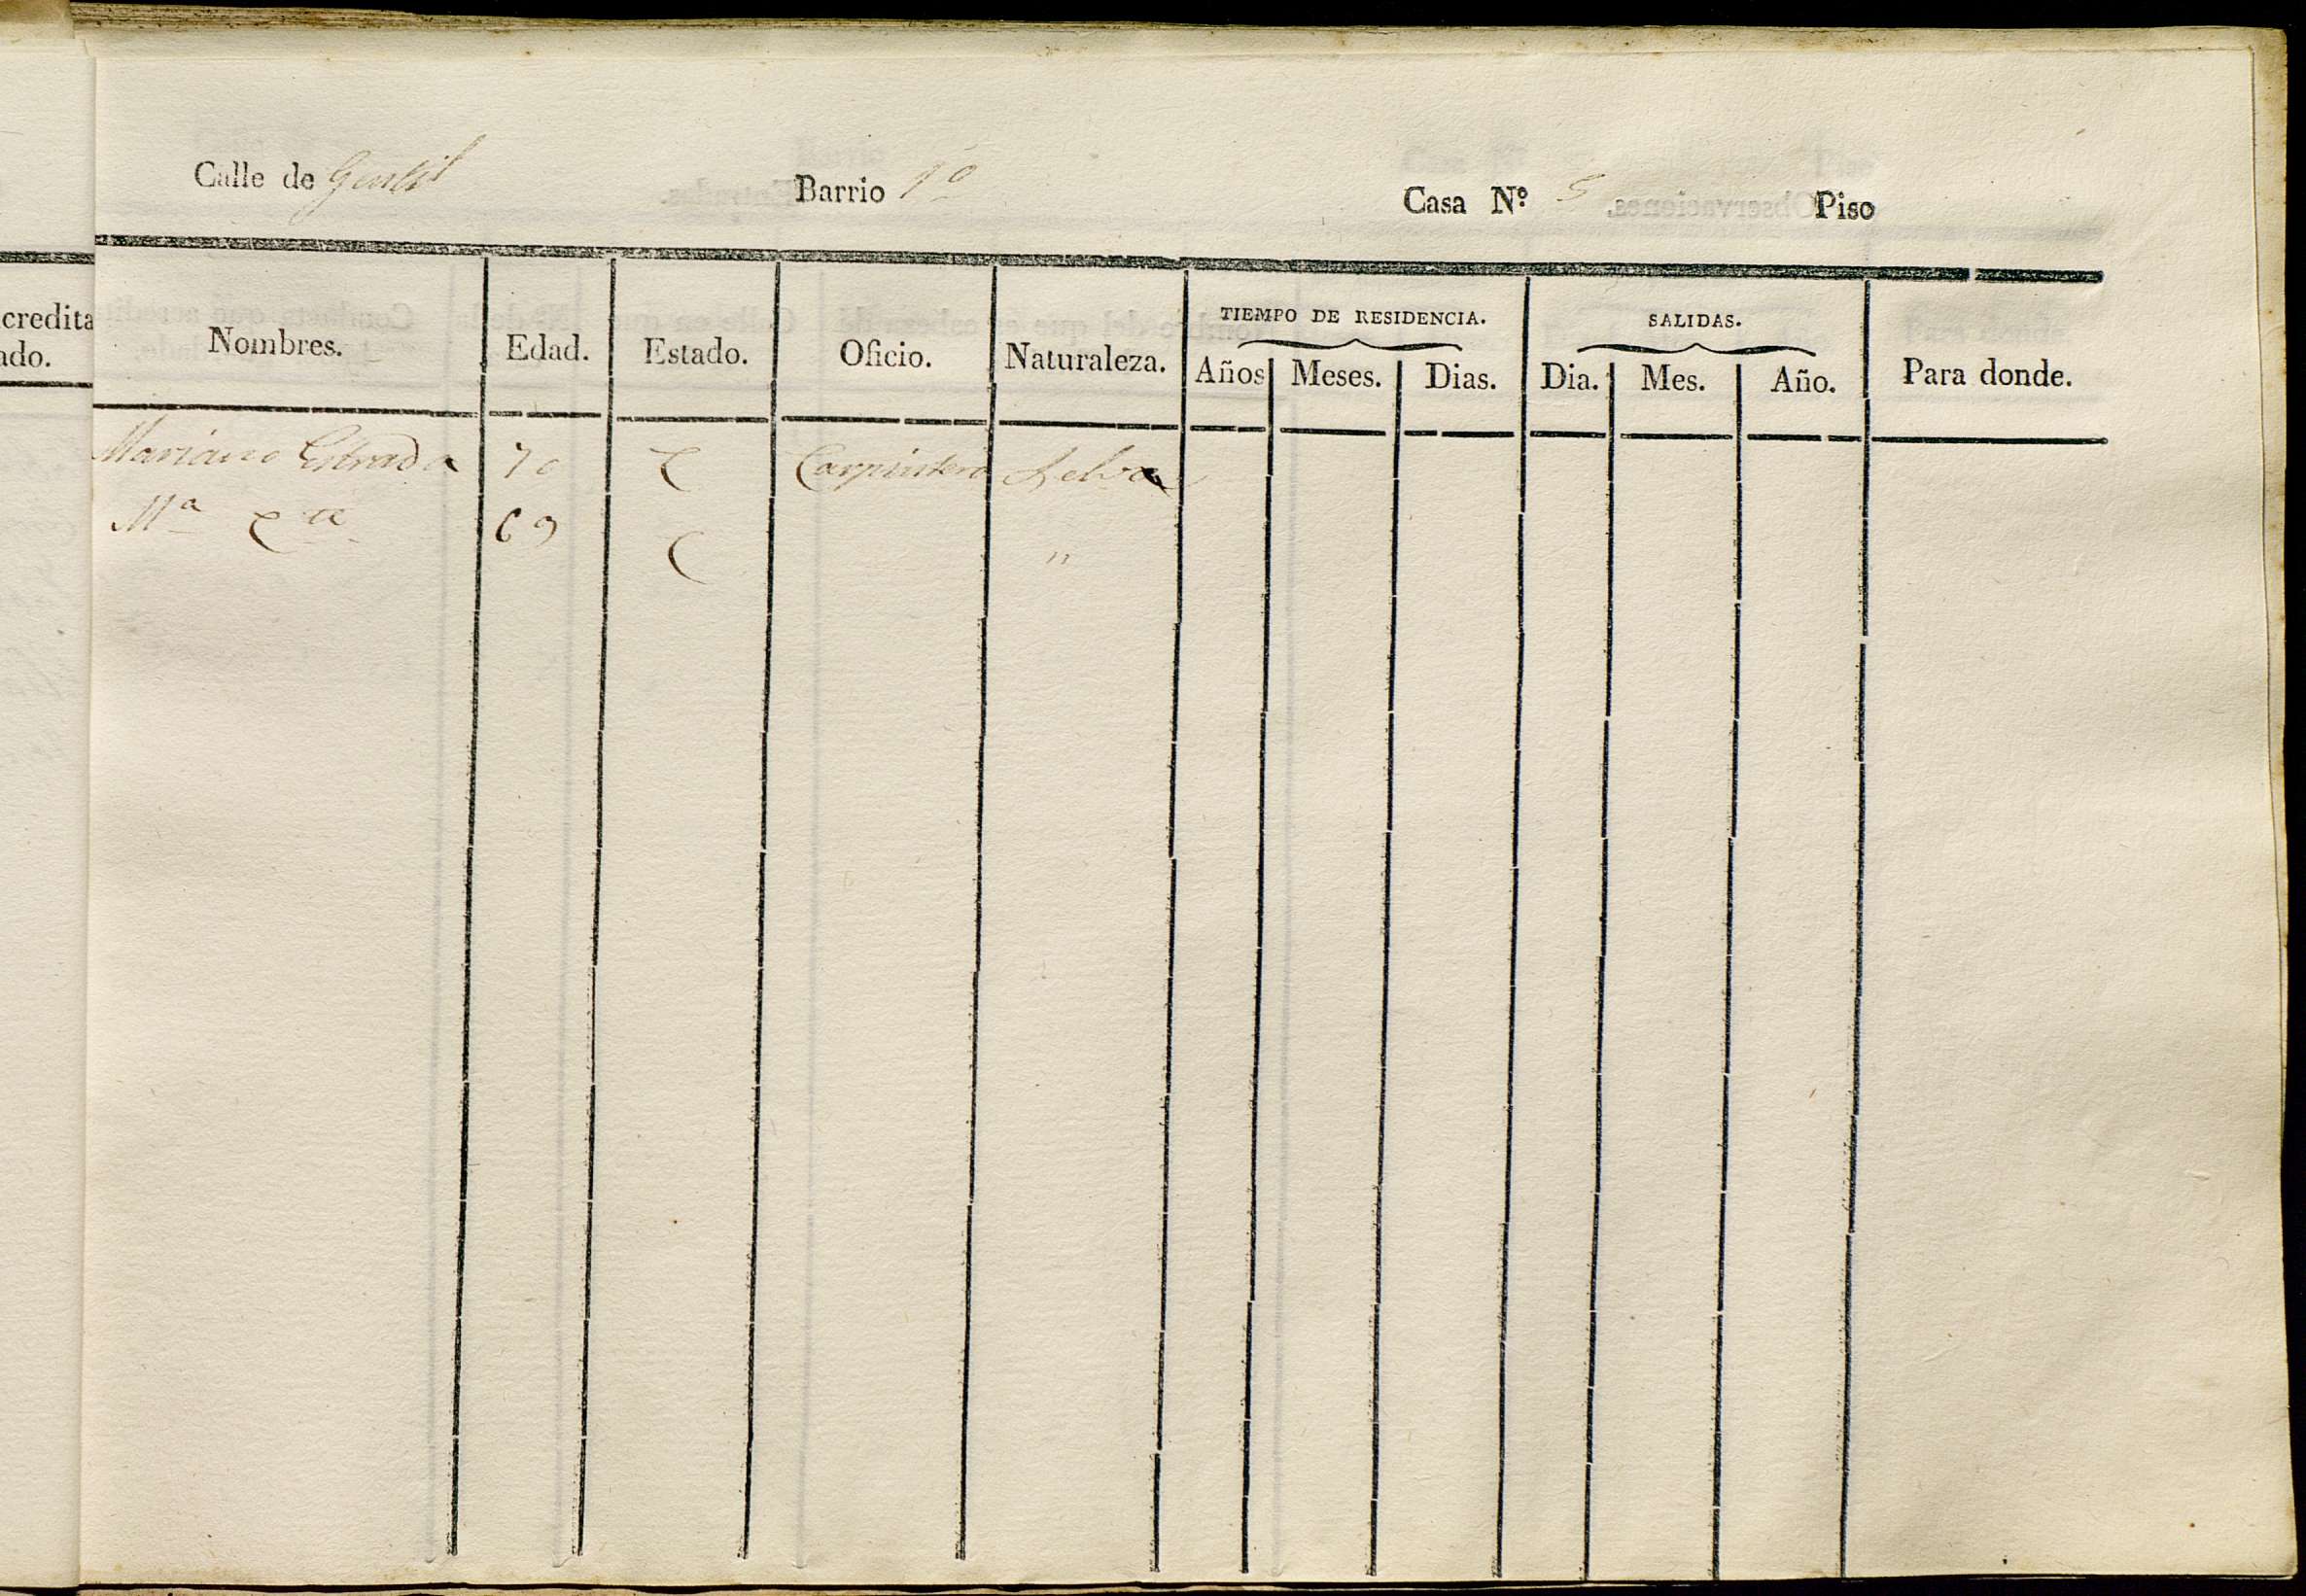 Calle de Gentil Barrio 1º Casa Nº 5 Piso
credita
ado.
Nombres. Edad. Estado. Oficio. Naturaleza. TIEMPO DE RESIDENCIA. SALIDAS. Para donde.
Años Meses. Dias. Dia. Mes. Año.
Mariano Estrada 70 C Carpintero Selva
Mª 69 C "